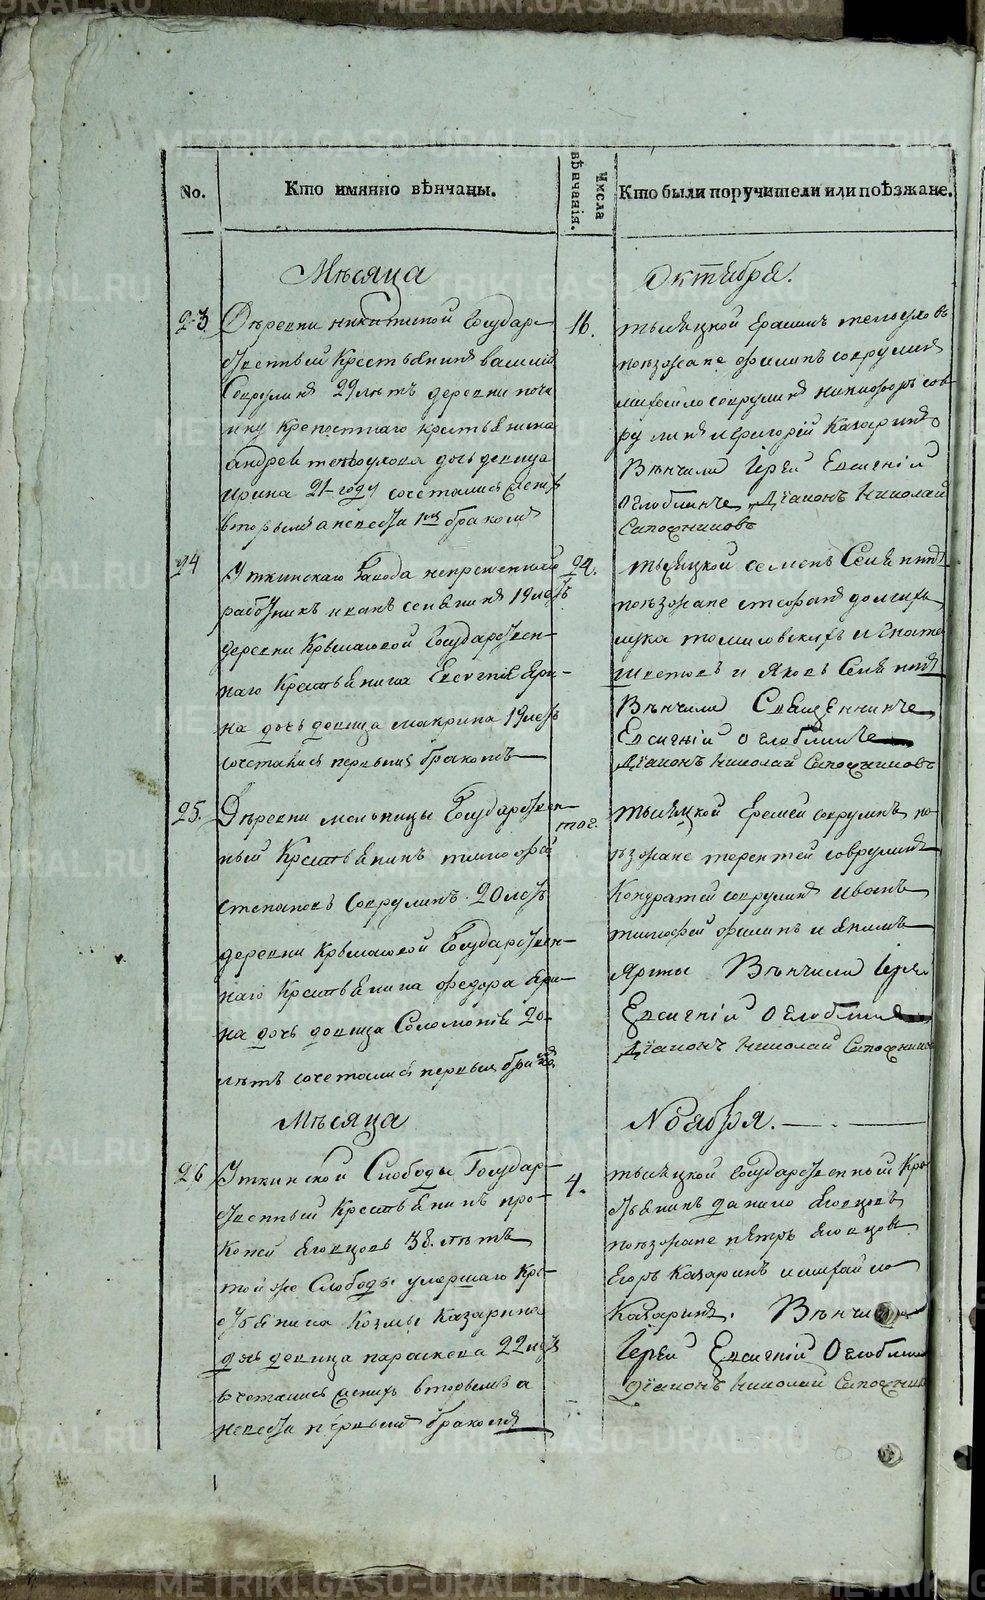 No.
Кто имянно вѣнчаны.
Числа вѣнчанія.
Кто были поручители или поѣзжане.
Мѣсяца
Октября.
23
Деревни Никитиной Государ-
ственный Крестьянинъ Василій
Соврулинъ 29 лѣтъ деревни почи
нку крепостнаго крестьянина
андрея дочь девица
Ирина 21 году сочетались женихъ
вторымъ а невеста 1мъ бракомъ
16.
тысяцкой
поезжане филипъ соврулинъ
михайло соврулинъ никифоръ сов
рулинъ и григорій Казаринъ
Вѣнчали Іерей Евсигній
Оглоблинъ Діаконъ Николай
Сапожниковъ
24
Уткинскаго Завода непременной
работникъ иванъ 19 летъ
деревни Крылашовой Государствен-
наго Крестьянина Евсигнія Яри-
на дочь девица макрина 19 летъ
сочетались первымъ бракомъ
24.
тысяцкой семенъ
поезжане долгихъ
шестовъ и Яковъ
Вѣнчали Священникъ
Евсигній Оглоблинъ
Діаконъ Николай Сапожниковъ
25.
Деревни мельницы Государствен-
ный Крестьянинъ тимофей
степановъ Соврулинъ 20 летъ
деревни Крылашовой Государствен-
наго Крестьянина федора Яри-
на дочь девица Соломонія 20-
лѣтъ сочетались первымъ бракомъ
тог.
тысяцкой Еремей соврулинъ по-
езжане терентей соврулинъ
Кондратей соврулинъ Иванъ
тимофей филипъ и якимъ
Ярины Вѣнчали Іерей
Евсигній Оглоблинъ
Діаконъ Николай Сапожников
Мѣсяца
Ноября.
26
Уткинской Слободы Государ-
ственный Крестьянинъ про-
копей Яговцовъ 38. лѣтъ
той же Слободы умершаго Кре-
стьянина Козмы Казарина
дочь девица параскева 22 летъ
сочетались женихъ вторымъ а
невеста первымъ бракомъ
4.
тысяцкой Государственный Кре
стьянинъ данило Яговцовъ
поезжане пётръ Яговцовъ
Егоръ Казаринъ и михайло
Казаринъ. Вѣнчали
Іерей Евсигній Оглоблин
Діаконъ Николай Сапожник
METRIKI.GASO-URAL.RU